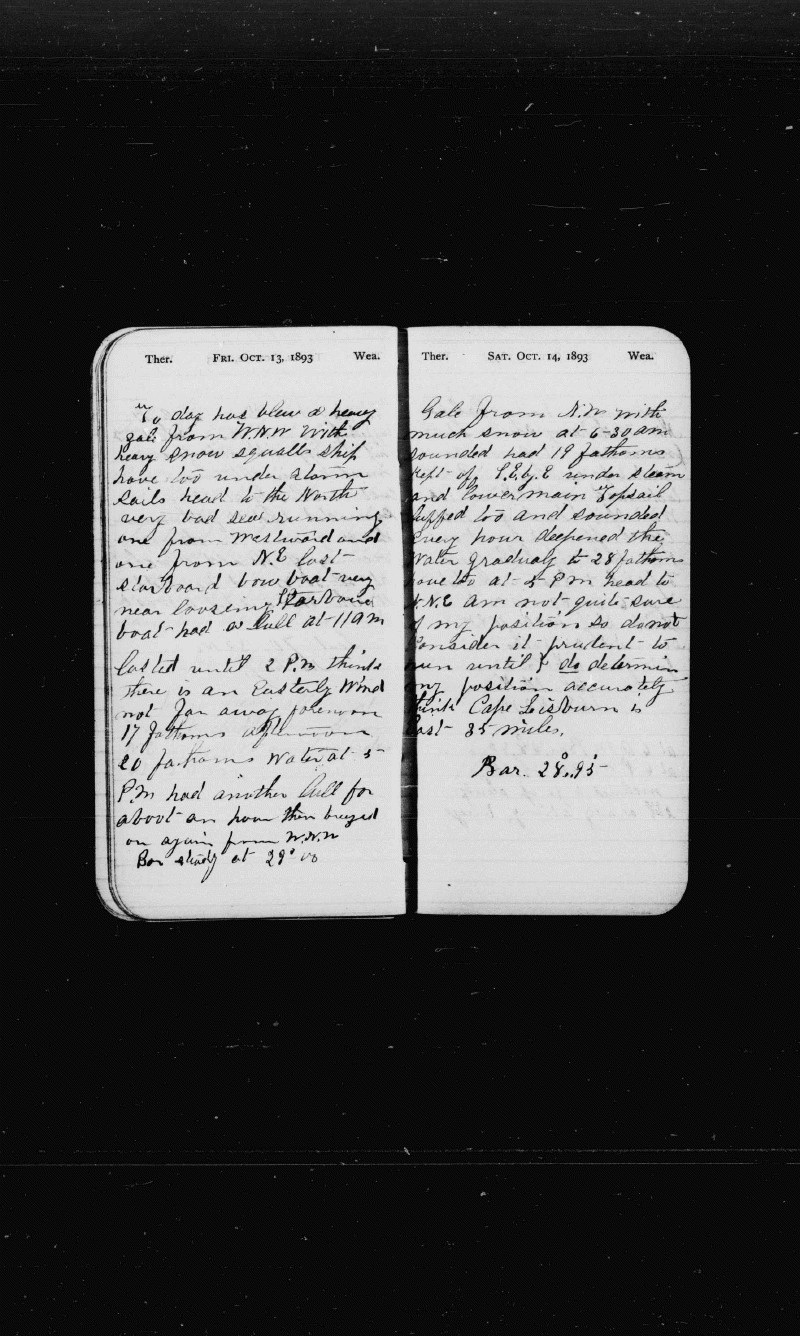 Ther. FRI. OCT. 13, 1893 Wea.
To day has blew a heavy
gale from W.N.W with
heavy snow squalls ship
have too under storm
sails head to the North
very bad sea running
one from Westward and
one from N.E lost
starboard bow boat very
near loosing Starboard
boat had a lull at 11 am
lasted until 2 P.m think
there is an Easterly Wind
not far away forenoon
17 fathoms afternoon
20 fathoms Water at 5
P.m had another lull for
about an hour then breezed
on again from
Bar steady at 29°00
Ther. SAT. OCT. 14, 1893 Wea.
Gale from N.W with
much snow at 6-30 am
sounded had 19 fathoms
kept of S.E.by.E under steam
and lower main topsail
luffed too and sounded
Every hour deepened the
Water gradualy to 28 fathoms
hove too at 5 P m head to
N.N.E am not quite sure
of my position so do not
Consider it prudent to
run until I do determin
my position accurately
think Cape Lisburn is
East 35 miles.
Bar. 28°.95